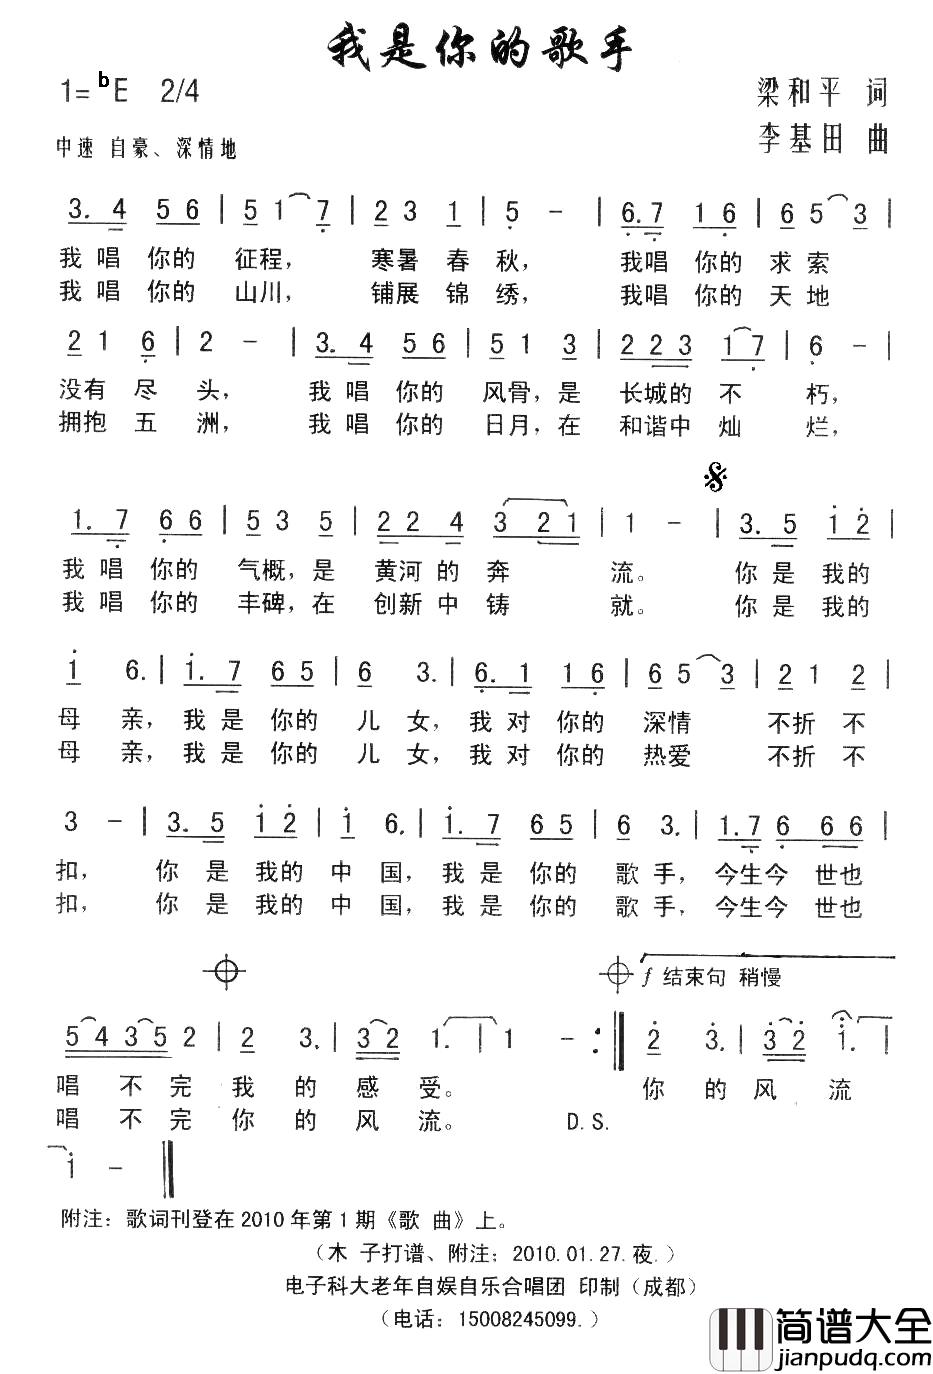 我是你的歌手
1=♭E 2/4
梁和平 词
中速 自豪、深情地
李基田 曲
3. 4 5 6 | 5 1 7 | 2 3 1 | 5 - | 6. 7 1 6 | 6 5 3 |
我唱你的征程, 寒暑春秋, 我唱你的求索
我唱你的山川, 铺展锦绣, 我唱你的天地
2 1 6 | 2 - | 3. 4 5 6 | 5 1 3 | 2 2 3 1 7 | 6 - |
没有尽头, 我唱你的风骨,是长城的不朽,
拥抱五洲, 我唱你的日月,在和谐中灿烂,
1. 7 6 6 | 5 3 5 | 2 2 4 3 2 1 | 1 - | 3. 5 1 2 |
我唱你的气概,是黄河的奔流。 你是我的
我唱你的丰碑,在创新中铸就。 你是我的
1 6. | 1. 7 6 5 | 6 3. | 6. 1 1 6 | 6 5 3 | 2 1 2 |
母亲,我是你的儿女,我对你的深情 不折不
母亲,我是你的儿女,我对你的热爱 不折不
3 - | 3. 5 1 2 | 1 6. | 1. 7 6 5 | 6 3. | 1. 7 6 6 6 |
扣, 你是我的中国,我是你的歌手,今生今世也
扣, 你是我的中国,我是你的歌手,今生今世也
f 结束句 稍慢
5 4 3 5 2 | 2 3. | 3 2 1. | 1 - :‖ 2 3. | 3 2 1. |
唱不完我的感受。 你的风流
唱不完你的风流。 D.S.
1 - ‖
附注: 歌词刊登在2010年第1期《歌 曲》上。
(木 子打谱、附注; 2010.01.27.夜.)
电子科大老年自娱自乐合唱团 印制(成都)
(电话: 15008245099.)
简谱大全
jianpudq.com